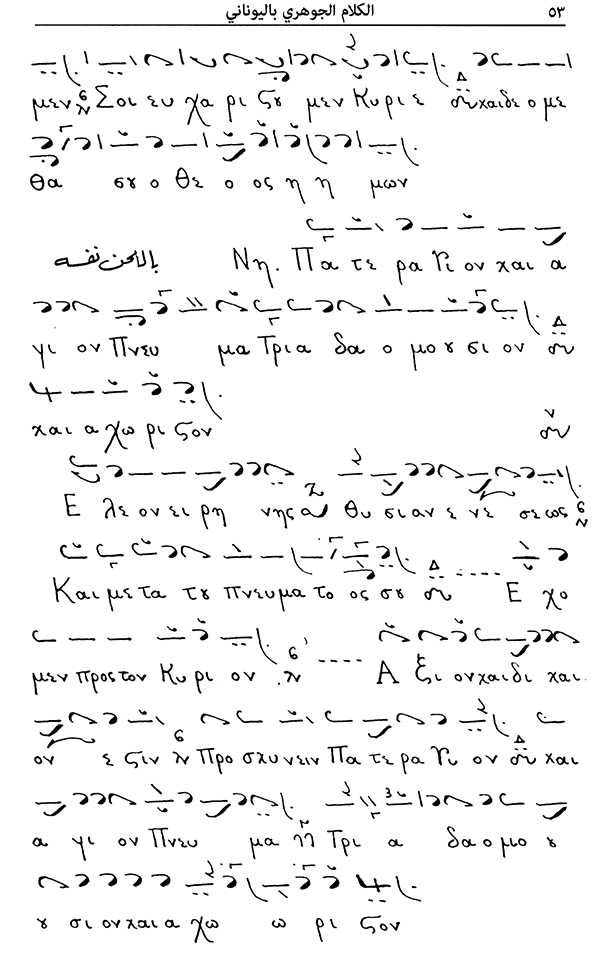 ٥٣ الكلام الجوهري باليوناني
μεν Σοι ευ χα ρι ςου μεν Κυ ρι ε και δε ο με
θα σου ο Θε ο ος η η μων
باللحن نفسه Νη. Πα τε ρα Υι ον και α
γι ον Πνευ μα Τρι α δα ο μο ου σι ον
και α χω ρι ςον
Ε λε ον ει ρη νης θυ σι αν ε νε σε ως
Και με τα του πνευ μα το ος σου Ε χο
μεν προς τον Κυ ρι ον Α ξι ον και δι και
ον ε ςιν Προ σκυ νειν Πα τε ρα Υι ον και
α γι ον Πνευ μα Τρι α δα ο μο ου
ου σι ον και α χω ω ρι ςον